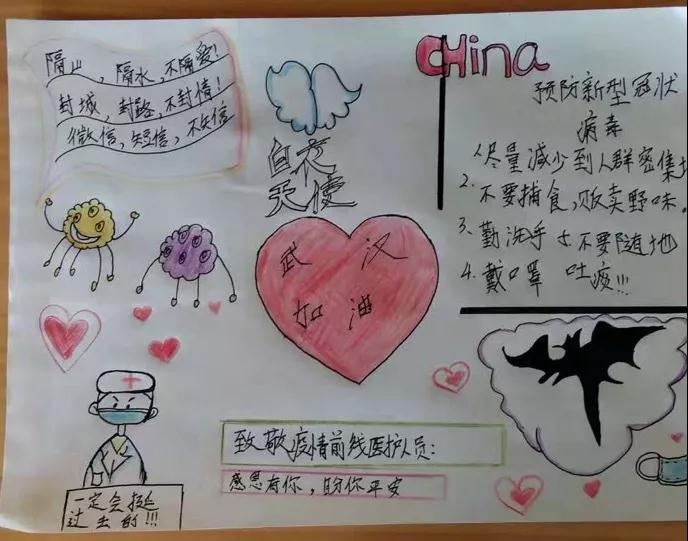 隔山，隔水，不隔爱！
封城，封路，不封情！
微信，短信，不失信
白衣
天使
武汉
加油
China
预防新型冠状
病毒
1.尽量减少到人群密集
2.不要捕食，贩卖野味。
3.勤洗手 5不要随地
4.戴口罩 吐痰!!!
致敬疫情前线医护人员：
感恩有你，盼你平安
一定会挺
过去的!!!